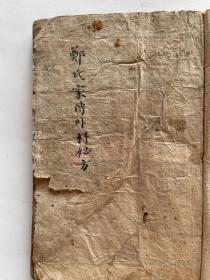 鄭氏家傳外科秘方